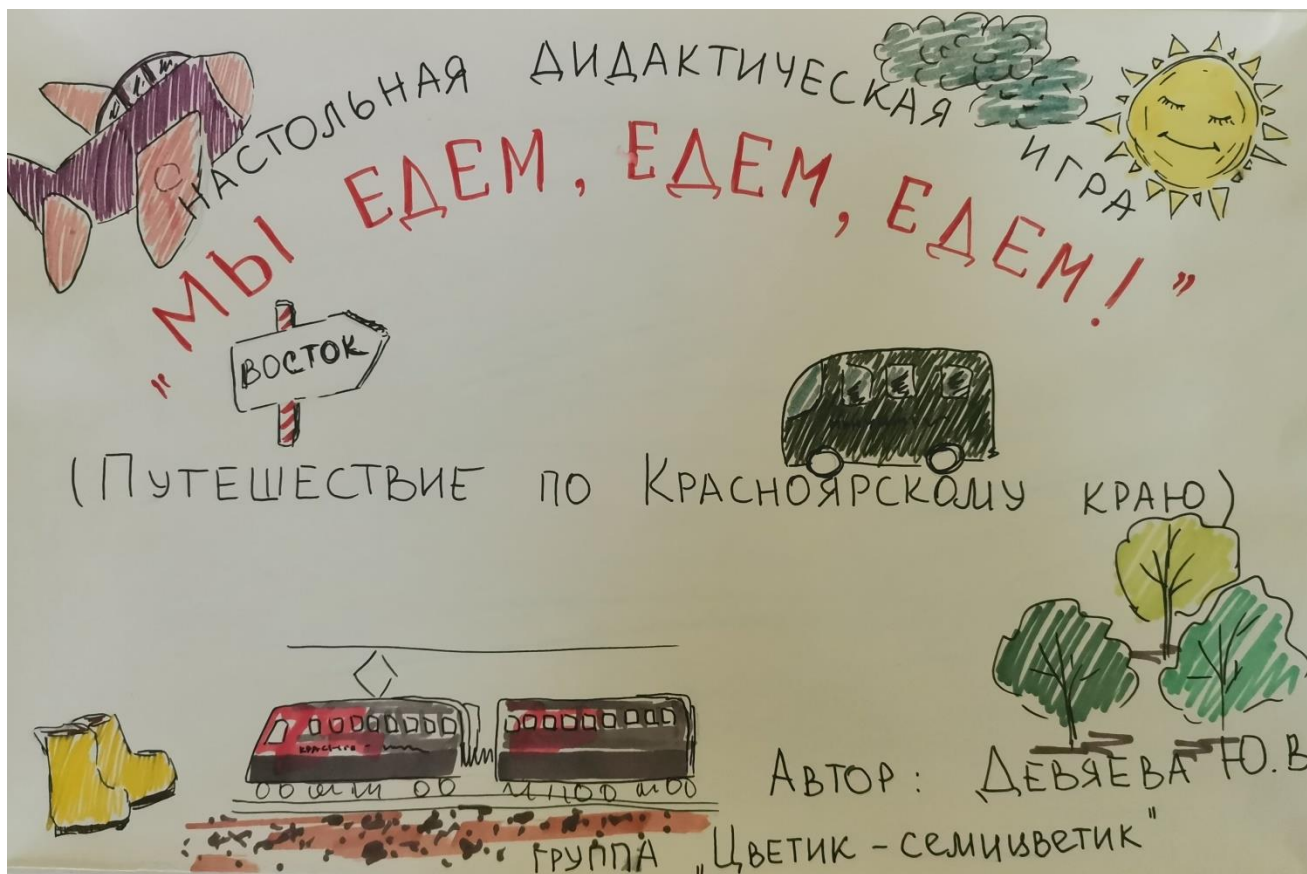 НАСТОЛЬНАЯ ДИДАКТИЧЕСКАЯ ИГРА
"МЫ ЕДЕМ, ЕДЕМ, ЕДЕМ!"
ВОСТОК
(ПУТЕШЕСТВИЕ ПО КРАСНОЯРСКОМУ КРАЮ)
АВТОР: ДЕВЯЕВА Ю.В
ГРУППА „ЦВЕТИК - СЕМИЦВЕТИК"